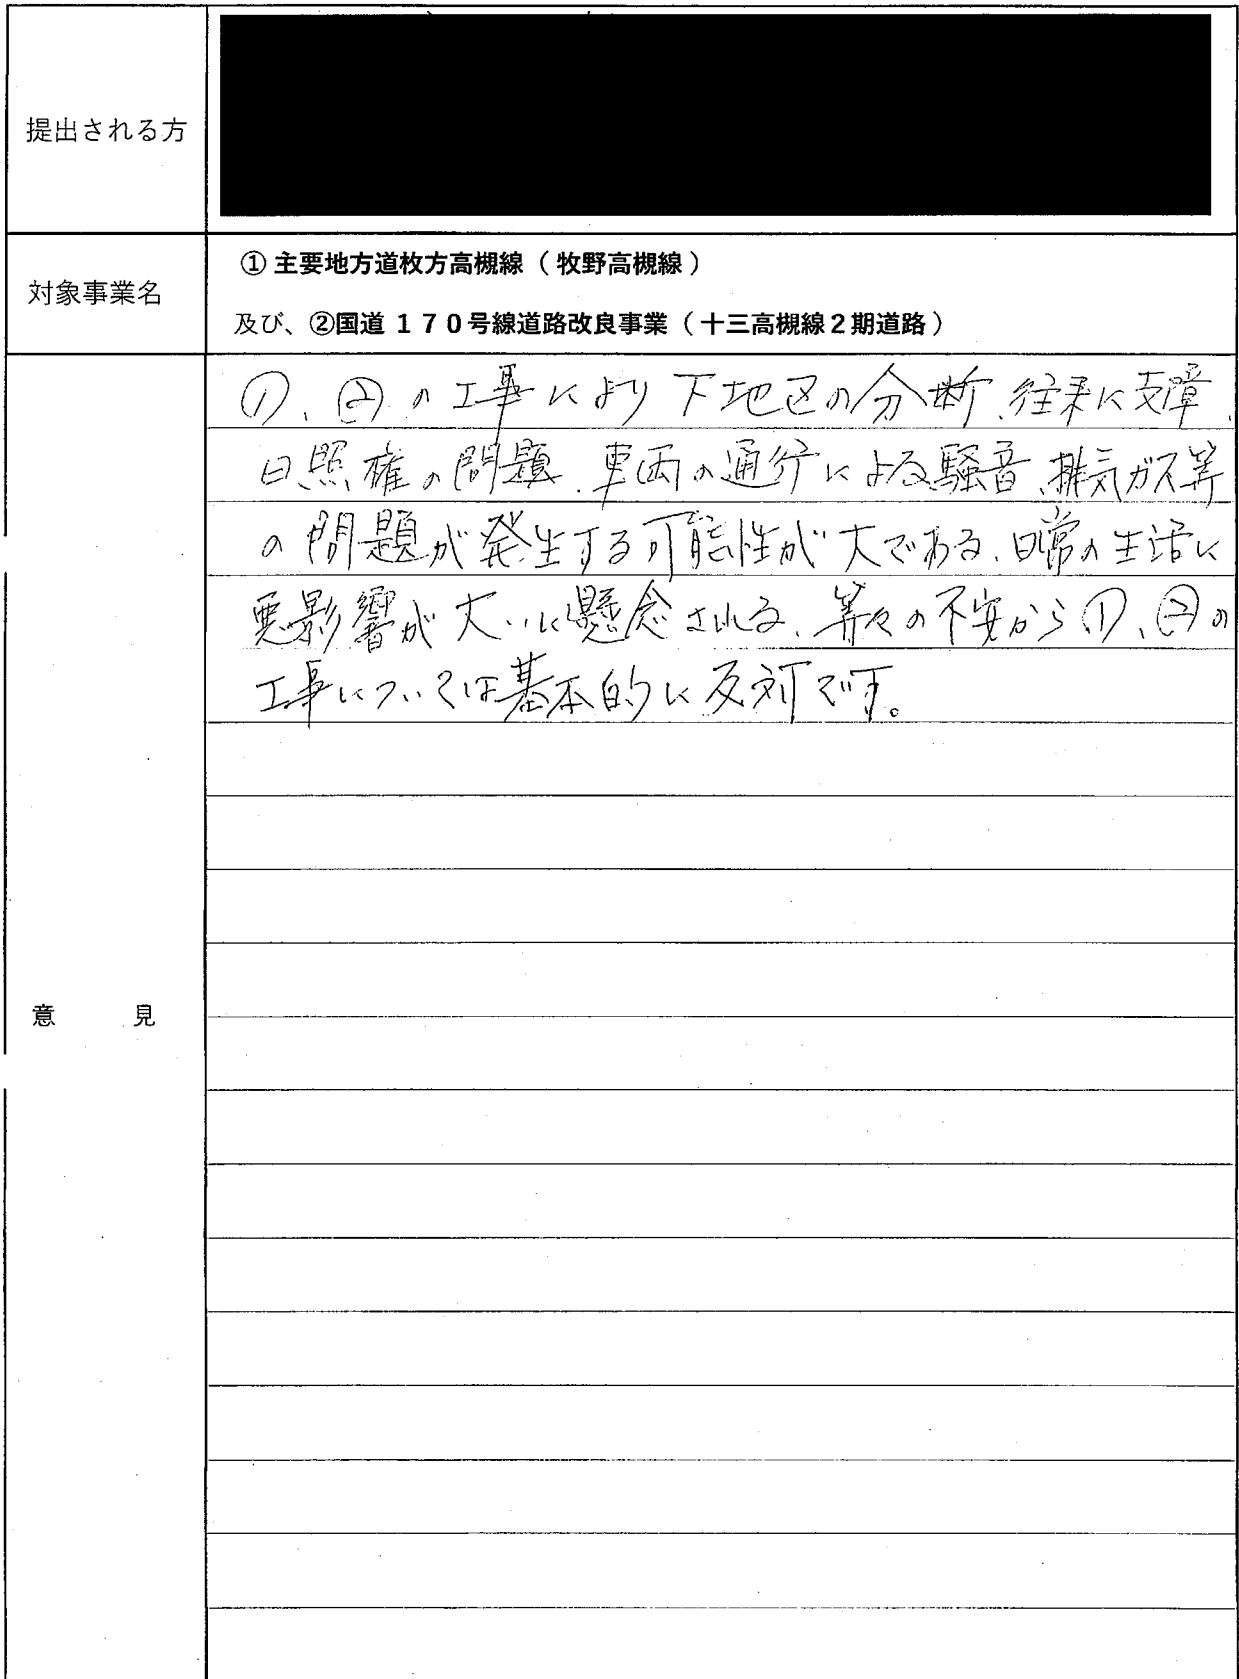 提出される方
対象事業名
① 主要地方道枚方高槻線（牧野高槻線）
及び、②国道１７０号線道路改良事業（十三高槻線２期道路）
意見
①、②の工事により下地区の分断、往来に支障、
日照権の問題、車両の通行による騒音、排気ガス等
の問題が発生する可能性が大である、日常の生活に
悪影響が大いに懸念される、等々の不安から①、②の
工事については基本的に反対です。